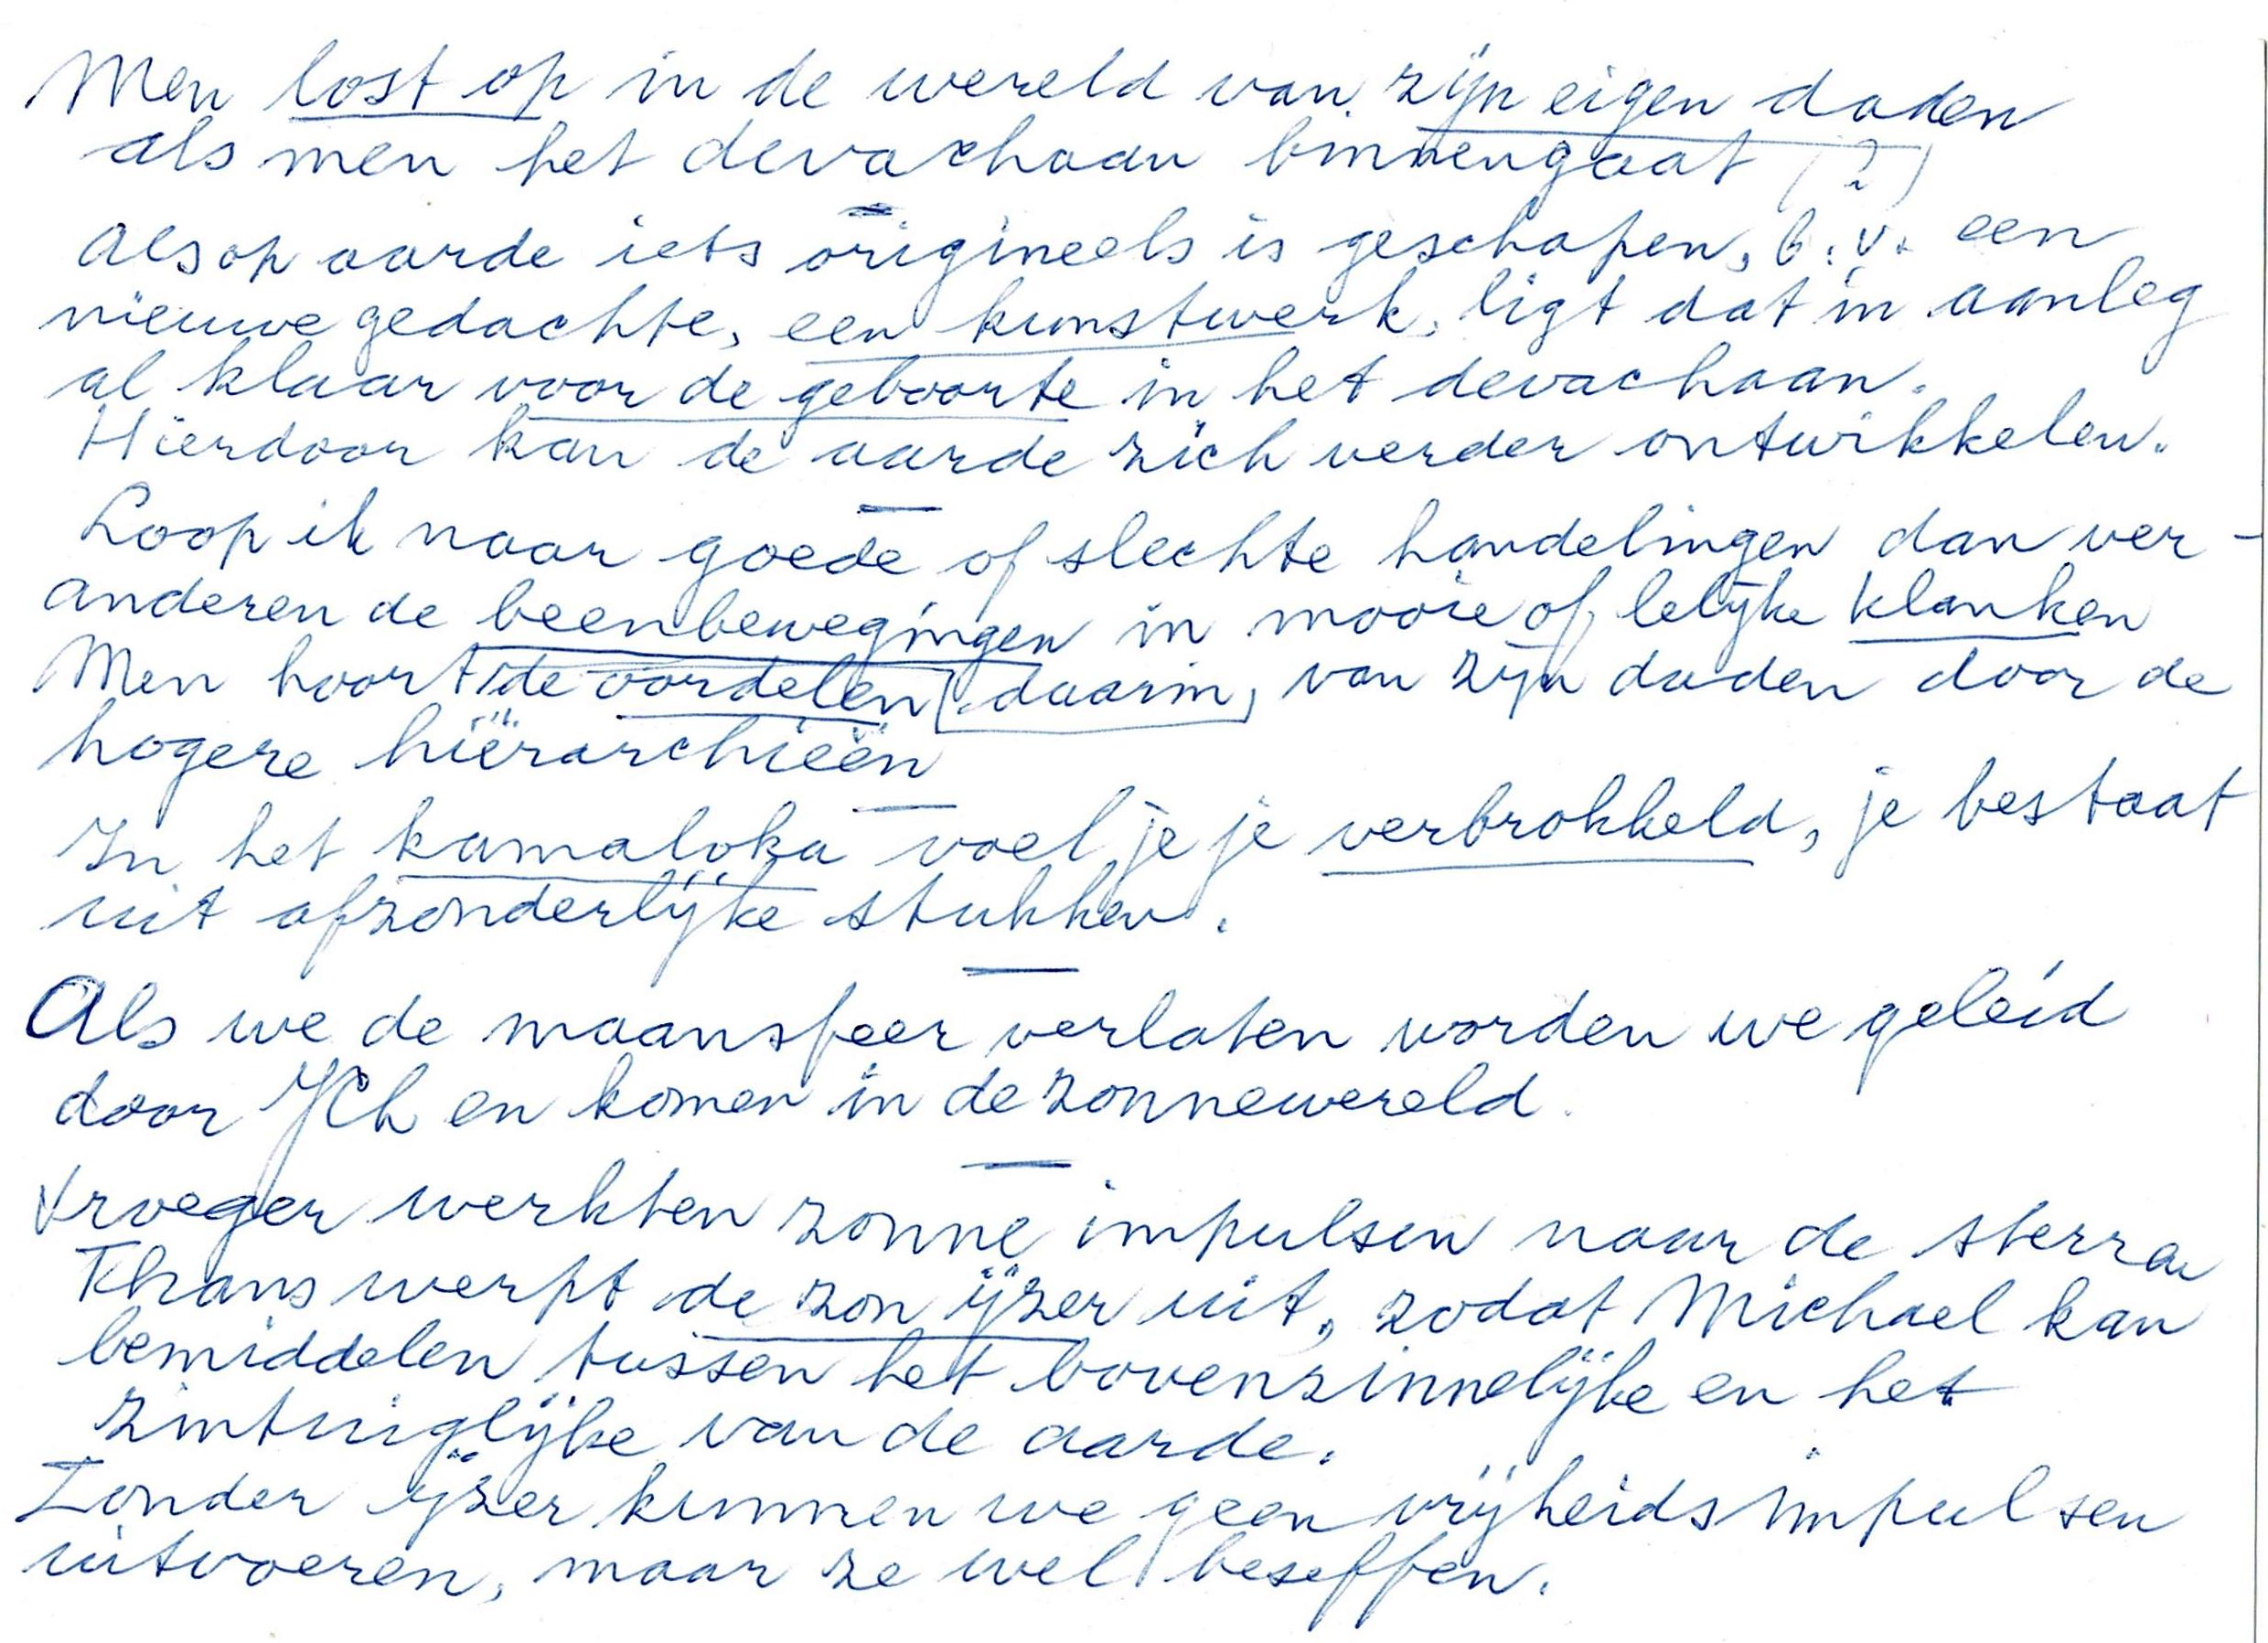 Men lost op in de wereld van zijn eigen daden
als men het devachaan binnengaat (?)
Als op aarde iets origineels is geschapen, b.v. een
nieuwe gedachte, een kunstwerk, ligt dat in aanleg
al klaar voor de geboorte in het devachaan.
Hierdoor kan de aarde zich verder ontwikkelen.
Loop ik naar goede of slechte handelingen dan ver-
anderen de beenbewegingen in mooie of lelijke klanken
Men hoort de oordelen daarin, van zijn daden door de
hogere hiërarchieën
In het kamaloka voel je je verbrokkeld, je bestaat
uit afzonderlijke stukken.
Als we de maansfeer verlaten worden we geleid
door JCh en komen in de zonnewereld.
Vroeger werkten zonne impulsen naar de sterren
Thans werpt de zon ijzer uit, zodat Michael kan
bemiddelen tussen het bovenzinnelijke en het
zintuiglijke van de aarde.
Zonder ijzer kunnen we geen vrijheidsimpulsen
uitvoeren, maar ze wel beseffen.